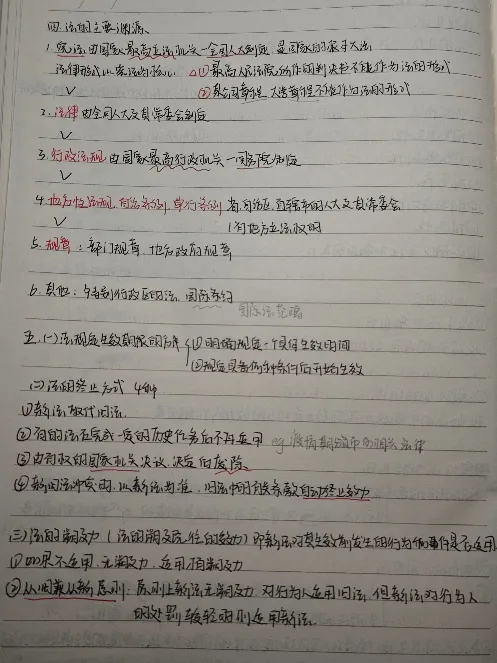 四.法的主要渊源.
1.宪法 由国家最高立法机关—全国人大制定,是国家的根本大法
法律形式以宪法为核心 △①最高人民法院所作的判决书不能作为法的形式
∨ ②某公司章程,大学章程不能作为法的形式
2.法律 由全国人大及其常委会制定
∨
3.行政法规 由国家最高行政机关—国务院制定
∨
4.地方性法规,自治条例,单行条例 省,自治区,直辖市的人大及其常委会
∨ (有地方立法权的
5.规章:部门规章,地方政府规章
6.其他:特别行政区的法,国际条约
国际法范畴
五.(一)法规定生效期限的方式 ①明确规定一个具体生效的时间
②规定具备何种条件后开始生效
(二)法的终止方式 4种
①新法取代旧法.
②有的法在完成一定的历史任务后不再适用 eg.疫情期间布的相关法律
③由有权的国家机关决议、决定的废除.
④新旧法冲突时,以新法为准,旧法中的有关条款自动终止效力
(三)法的溯及力(法的溯及既往的效力)即新法对其生效前发生的行为和事件是否适用
①如果不适用,无溯及力,适用有溯及力
②从旧兼从新原则:原则上新法无溯及力,对行为人适用旧法,但新法对行为人
的处罚较轻时则适用新法.